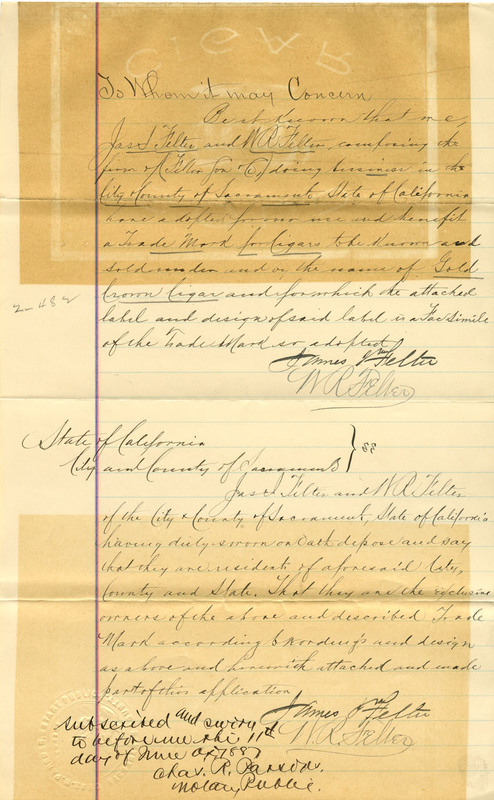 To Whom it may Concern
Be it known that we,
Jas I Felter and W R Felter, composing the
firm of Felter Son & Co, doing business in the
City & County of Sacramento State of California
have adopted for our use and benefit
a Trade Mark for Cigars to be known and
sold under and in the name of Gold
Crown Cigar and for which the attached
label and design of said label is a Facsimile
of the Trade Mark so adopted
James Felter
W. R. Felter
2-482
State of California
City and County of Sacramento } SS
Jas I Felter and W R Felter
of the City & County of Sacramento, State of California
having duly sworn on Oath depose and say
that they are residents of aforesaid City,
County and State. That they are the exclusive
owners of the above and described Trade
Mark according to wording and design
as above and herewith attached and made
part of this application
James Felter
W. R. Felter
Subscribed and sworn
to before me this 11th
day of June AD 1887
Chas. R. Parsons.
Notary Public.